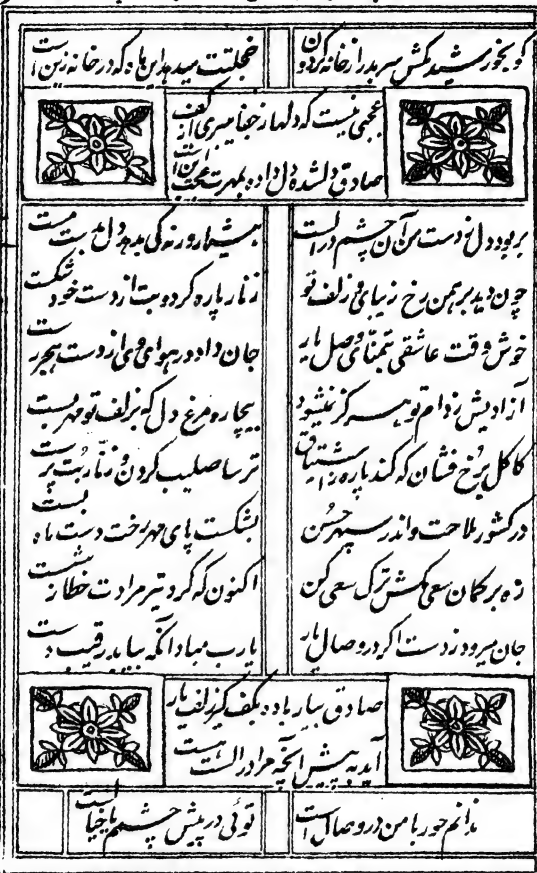 گو بخورشید مکش سر بدر از خانه گردون خجلتت میدهد این ماه که در خانه زین است
عجبی نیست که دلها ز جفا میبری از کف
صادق دلشده دل داده بمهرت عجب این است
بربود دل ز دست من آن چشم در الست هشیار ورنه کی بدهد دل بدست مست
چون دید برهمن رخ زیبای و زلف تو زنار پاره کرد و بت از دست خود شکست
خوش وقت عاشقی بتمنای وصل یار جان داد در هوای وی از دست هجر رست
آزادیش ز دام تو هرگز نمیشود بیچاره مرغ دل که بزلف تو مهر بست
کاکل برخ فشان که کند پاره ز اشتیاق ترسا صلیب گردن و زنار بت پرست
در کشور ملاحت و اندر سپهر حسن بشکست پای مهر رخت دست ماه بست
زه بر کمان سعی مکش ترک سعی کن اکنون که کرد تیر مرادت خطا نشست
جان میرود ز دست اگر در وصال یار یارب مباد آنکه بیاید رقیب
صادق بیار باده بکف گیر زلف یار
آید به پیش آنچه مرا در الست هست
ندانم حور با من در وصال است توئی در پیش چشمم یا خیال است